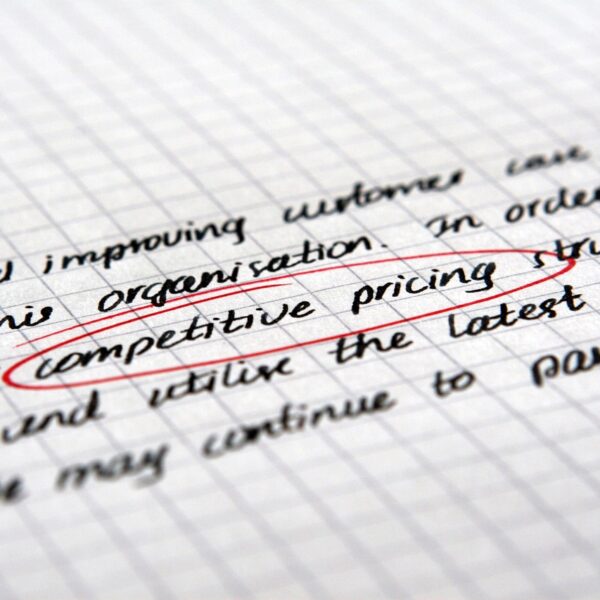 improving customer care
organisation. In order
competitive pricing
and utilise the latest
may continue to